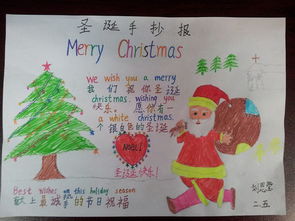 圣诞手抄报
Merry Christmas
We wish you a merry
我们祝你圣诞
christmas, wishing you
快乐。愿你有一
a white christmas.
个银白色的圣诞
NOEL!
圣诞快乐!
Best wishes on this holiday season
献上最诚挚的节日祝福
二.五